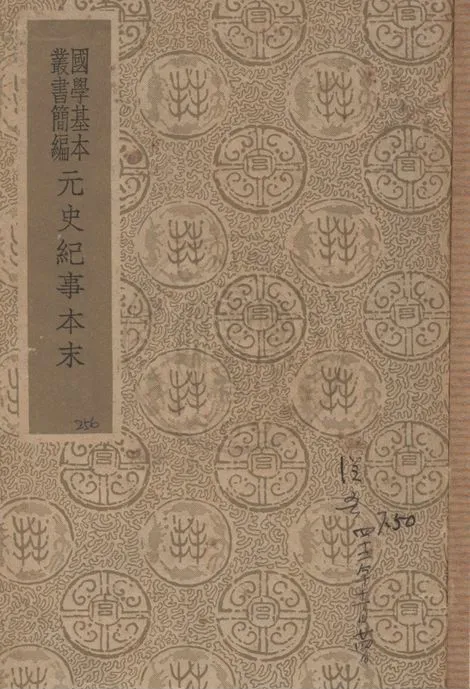 國學基本
叢書簡編
元史紀事本末
256
7.50